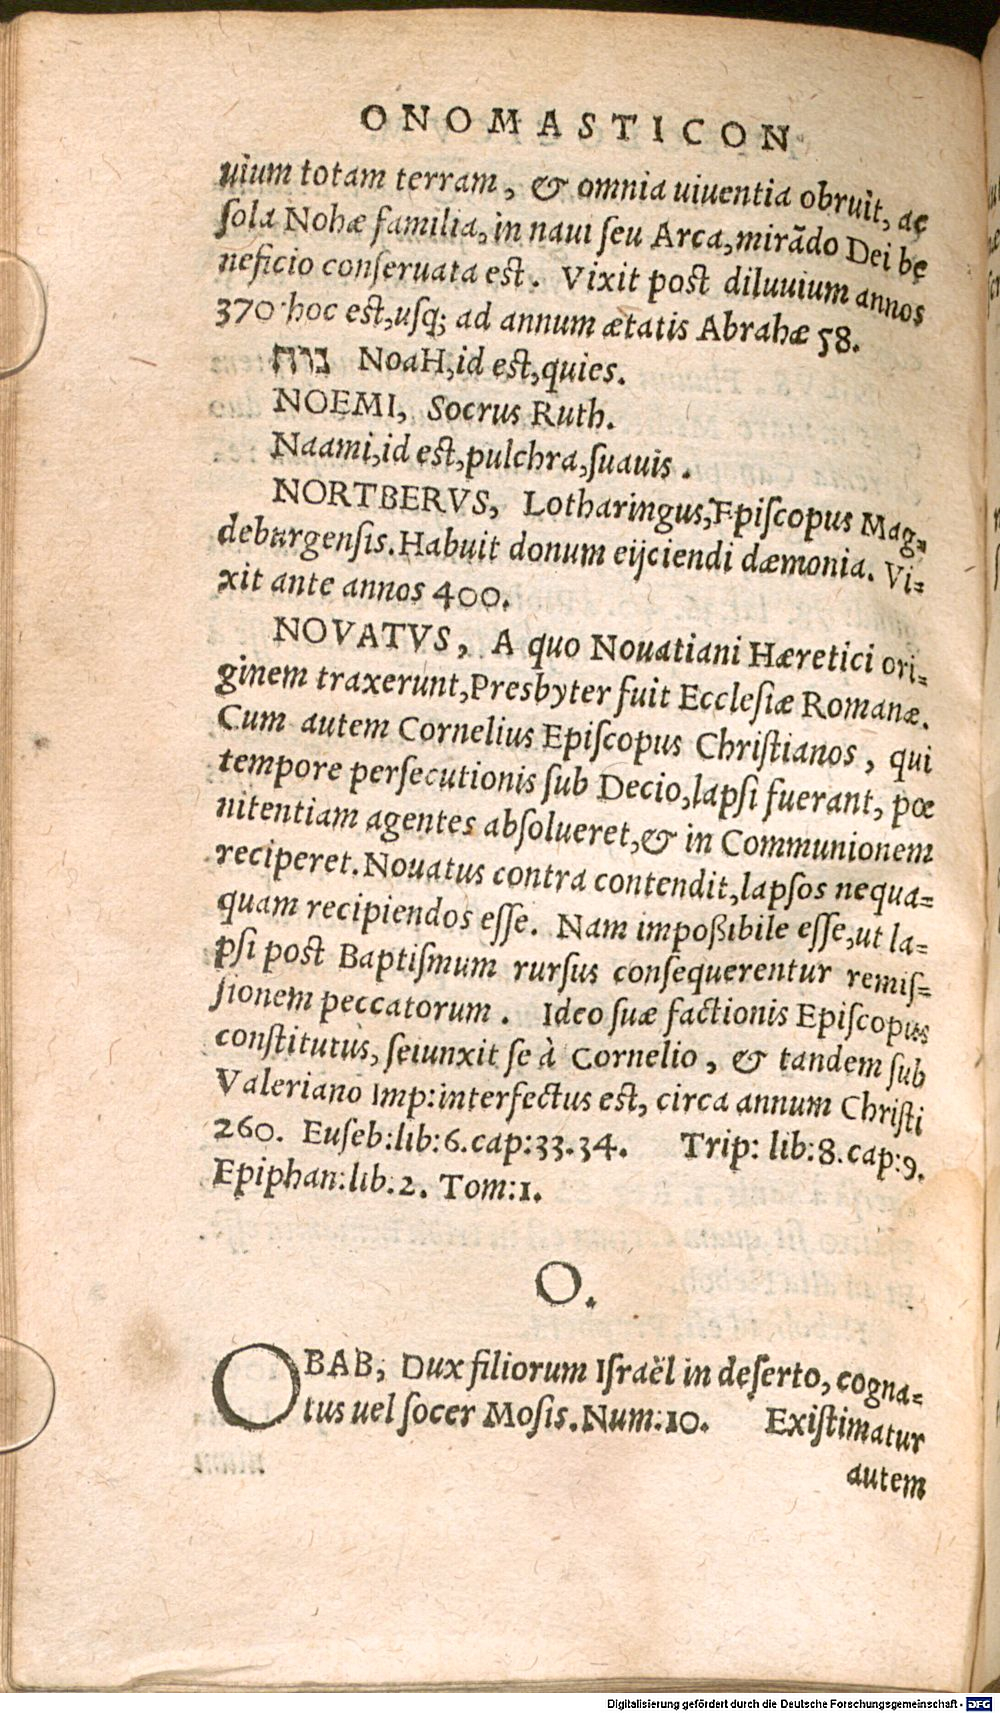 ONOMASTICON
uium totam terram, & omnia uiuentia obruit, ac
ſola Nohæ familia, in naui ſeu Arca, mirãdo Dei be
neficio conſeruata eſt. Vixit poſt diluuium annos
370 hoc eſt, uſq; ad annum ætatis Abrahæ 58.
נוח NoaH, id eſt, quies.
NOEMI, Socrus Ruth.
Naami, id eſt, pulchra, ſuauis.
NORTBERVS, Lotharingus, Epiſcopus Mag=
deburgenſis. Habuit donum eijciendi dæmonia. Vi=
xit ante annos 400.
NOVATVS, A quo Nouatiani Hæretici ori=
ginem traxerunt, Presbyter fuit Eccleſiæ Romanæ.
Cum autem Cornelius Epiſcopus Chriſtianos, qui
tempore perſecutionis ſub Decio, lapſi fuerant, pœ
nitentiam agentes abſolueret, & in Communionem
reciperet. Nouatus contra contendit, lapſos nequa=
quam recipiendos eſſe. Nam impoßibile eſſe, ut la=
pſi poſt Baptiſmum rurſus conſequerentur remiſ=
ſionem peccatorum. Ideo ſuæ factionis Epiſcopus
conſtitutus, ſeiunxit ſe à Cornelio, & tandem ſub
Valeriano Imp: interfectus eſt, circa annum Chriſti
260. Euſeb: lib: 6. cap: 33. 34. Trip: lib: 8. cap: 9.
Epiphan: lib: 2. Tom: 1.
O.
OBAB, Dux filiorum Iſraël in deſerto, cogna=
tus uel ſocer Moſis. Num: 10. Exiſtimatur
autem
Digitalisierung gefördert durch die Deutsche Forschungsgemeinschaft - DFG